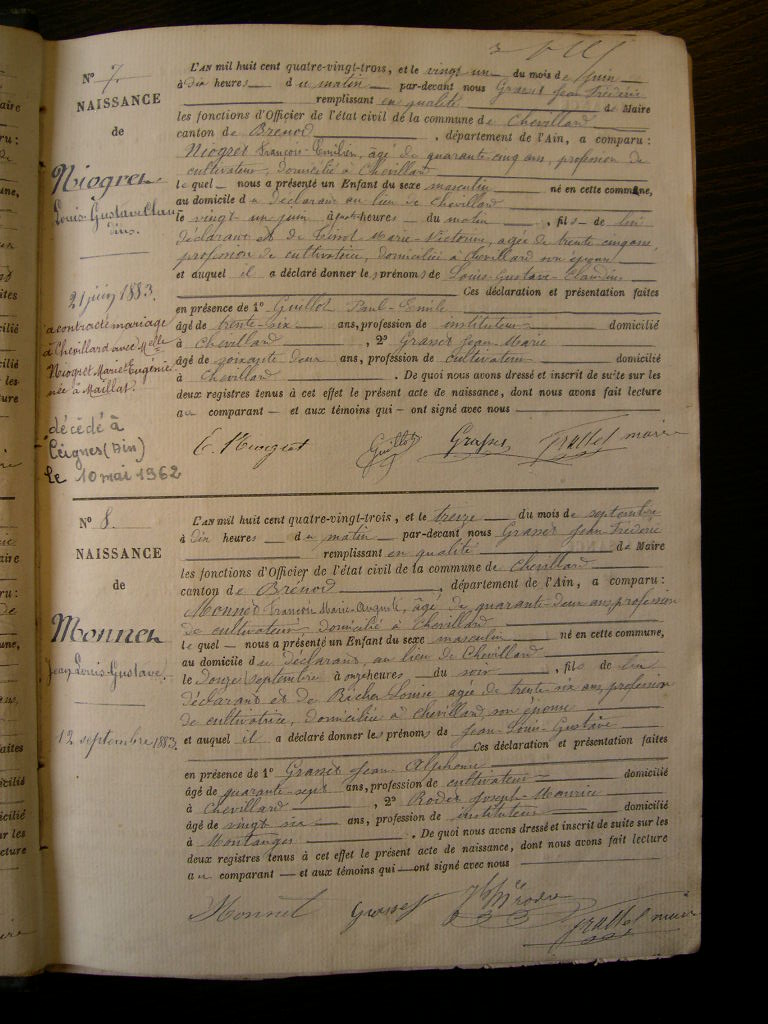 N° 7
NAISSANCE
de
Niogret
Louis Gustave Clau
dius
21 juin 1883.
a contracté mariage
à Chevillard avec Melle
Niogret Marie Eugénie
née à Maillat.
décédé à
Ceignes (Ain)
le 10 mai 1962
L'AN mil huit cent quatre-vingt-trois, et le vingt un du mois de juin
à dix heures du matin par-devant nous Jean Frédéric
remplissant en qualité de Maire
les fonctions d'Officier de l'état civil de la commune de Chevillard
canton de Brénod, département de l'Ain, a comparu :
Niogret François-Emilien, âgé de quarante cinq ans, profession de
cultivateur, domicilié à Chevillard
le quel nous a présenté un Enfant du sexe masculin né en cette commune,
au domicile du déclarant au lieu de Chevillard
le vingt un juin à heures du matin, fils de lui
déclarant et de Marie-Victorine, agée de trente cinq ans,
profession de cultivatrice, domiciliée à Chevillard son épouse
et auquel il a déclaré donner les prénoms de Louis-Gustave-Claudius
Ces déclaration et présentation faites
en présence de 1° Guillot Paul-Emile
âgé de trente-six ans, profession de instituteur domicilié
à Chevillard, 2° Jean-Marie
âgé de soixante deux ans, profession de cultivateur domicilié
à Chevillard. De quoi nous avons dressé et inscrit de suite sur les
deux registres tenus à cet effet le présent acte de naissance, dont nous avons fait lecture
au comparant et aux témoins qui ont signé avec nous
E. Niogret Guillot maire
N° 8.
NAISSANCE
de
Monnet
Jean Louis Gustave.
12 septembre 1883.
L'AN mil huit cent quatre-vingt-trois, et le treize du mois de septembre
à dix heures du matin par-devant nous Jean Frédéric
remplissant en qualité de Maire
les fonctions d'Officier de l'état civil de la commune de Chevillard
canton de Brénod, département de l'Ain, a comparu :
Monnet François Marie-Auguste, âgé de quarante-deux ans, profession
de cultivateur, domicilié à Chevillard
le quel nous a présenté un Enfant du sexe masculin né en cette commune,
au domicile du déclarant, au lieu de Chevillard
le douze septembre à onze heures du soir, fils de lui
déclarant et de Louise agée de trente six ans, profession
de cultivatrice, domiciliée à Chevillard, son épouse
et auquel il a déclaré donner les prénoms de Jean-Louis-Gustave
Ces déclaration et présentation faites
en présence de 1° Jean Alphonse
âgé de quarante-sept ans, profession de cultivateur domicilié
à Chevillard, 2° Rodet Joseph-Maurice
âgé de vingt six ans, profession de instituteur domicilié
à Montanges. De quoi nous avons dressé et inscrit de suite sur les
deux registres tenus à cet effet le présent acte de naissance, dont nous avons fait lecture
au comparant et aux témoins qui ont signé avec nous
Monnet maire